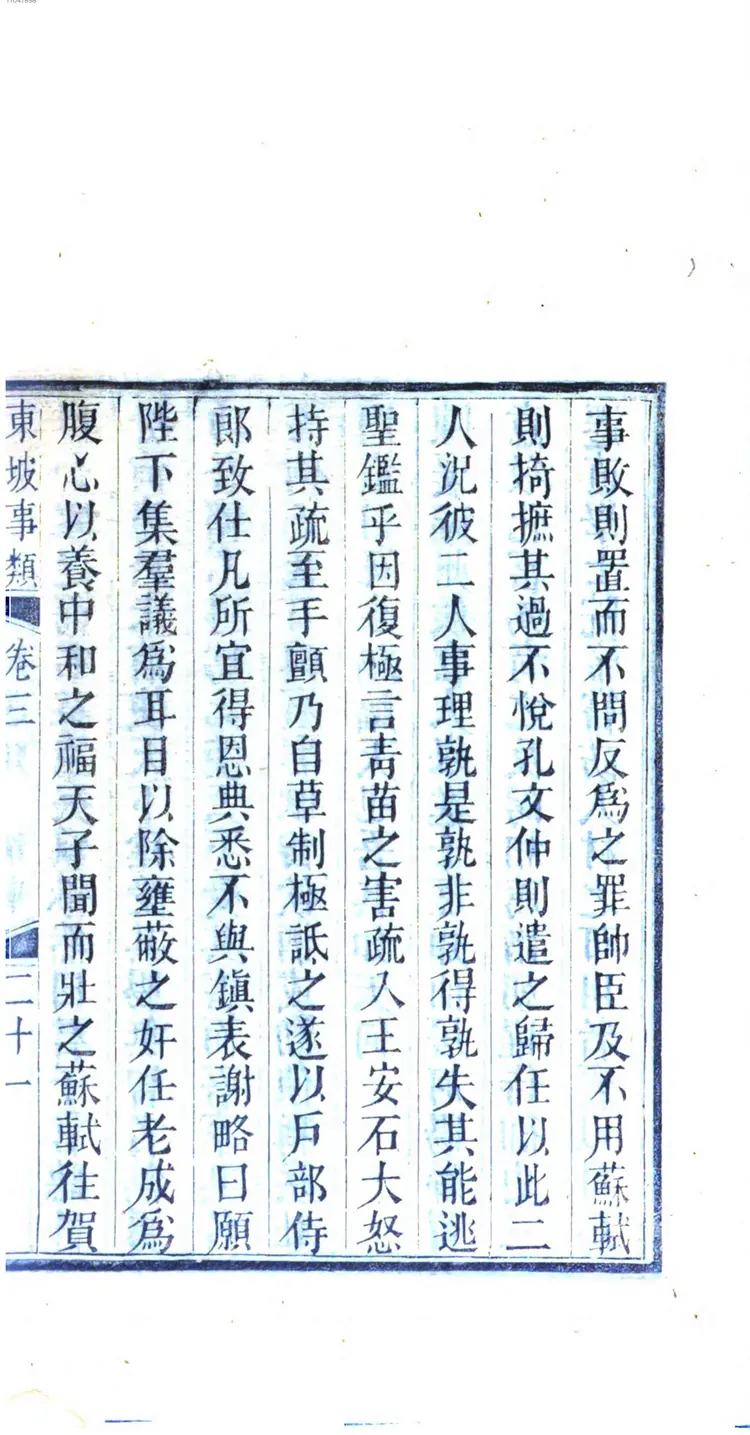 事敗則置而不問反爲之罪帥臣及不用蘇軾
則掎摭其過不悅孔文仲則遣之歸任以此二
人況彼二人事理孰是孰非孰得孰失其能逃
聖鑑乎因復極言靑苗之害疏入王安石大怒
持其疏至手顫乃自草制極詆之遂以戶部侍
郎致仕凡所宜得恩典悉不與鎭表謝略曰願
陛下集羣議爲耳目以除壅蔽之奸任老成爲
腹心以養中和之福天子聞而壯之蘇軾往賀
東坡事類 卷三 二十一